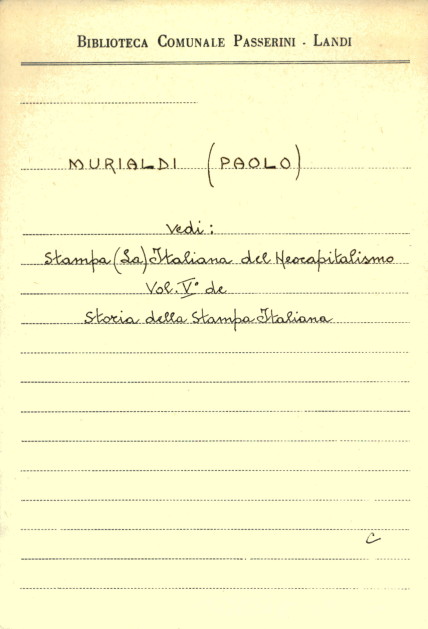 BIBLIOTECA COMUNALE PASSERINI - LANDI
MURIALDI (PAOLO)
Vedi:
Stampa (La) Italiana del Neocapitalismo
Vol. V° de
Storia della Stampa Italiana
C